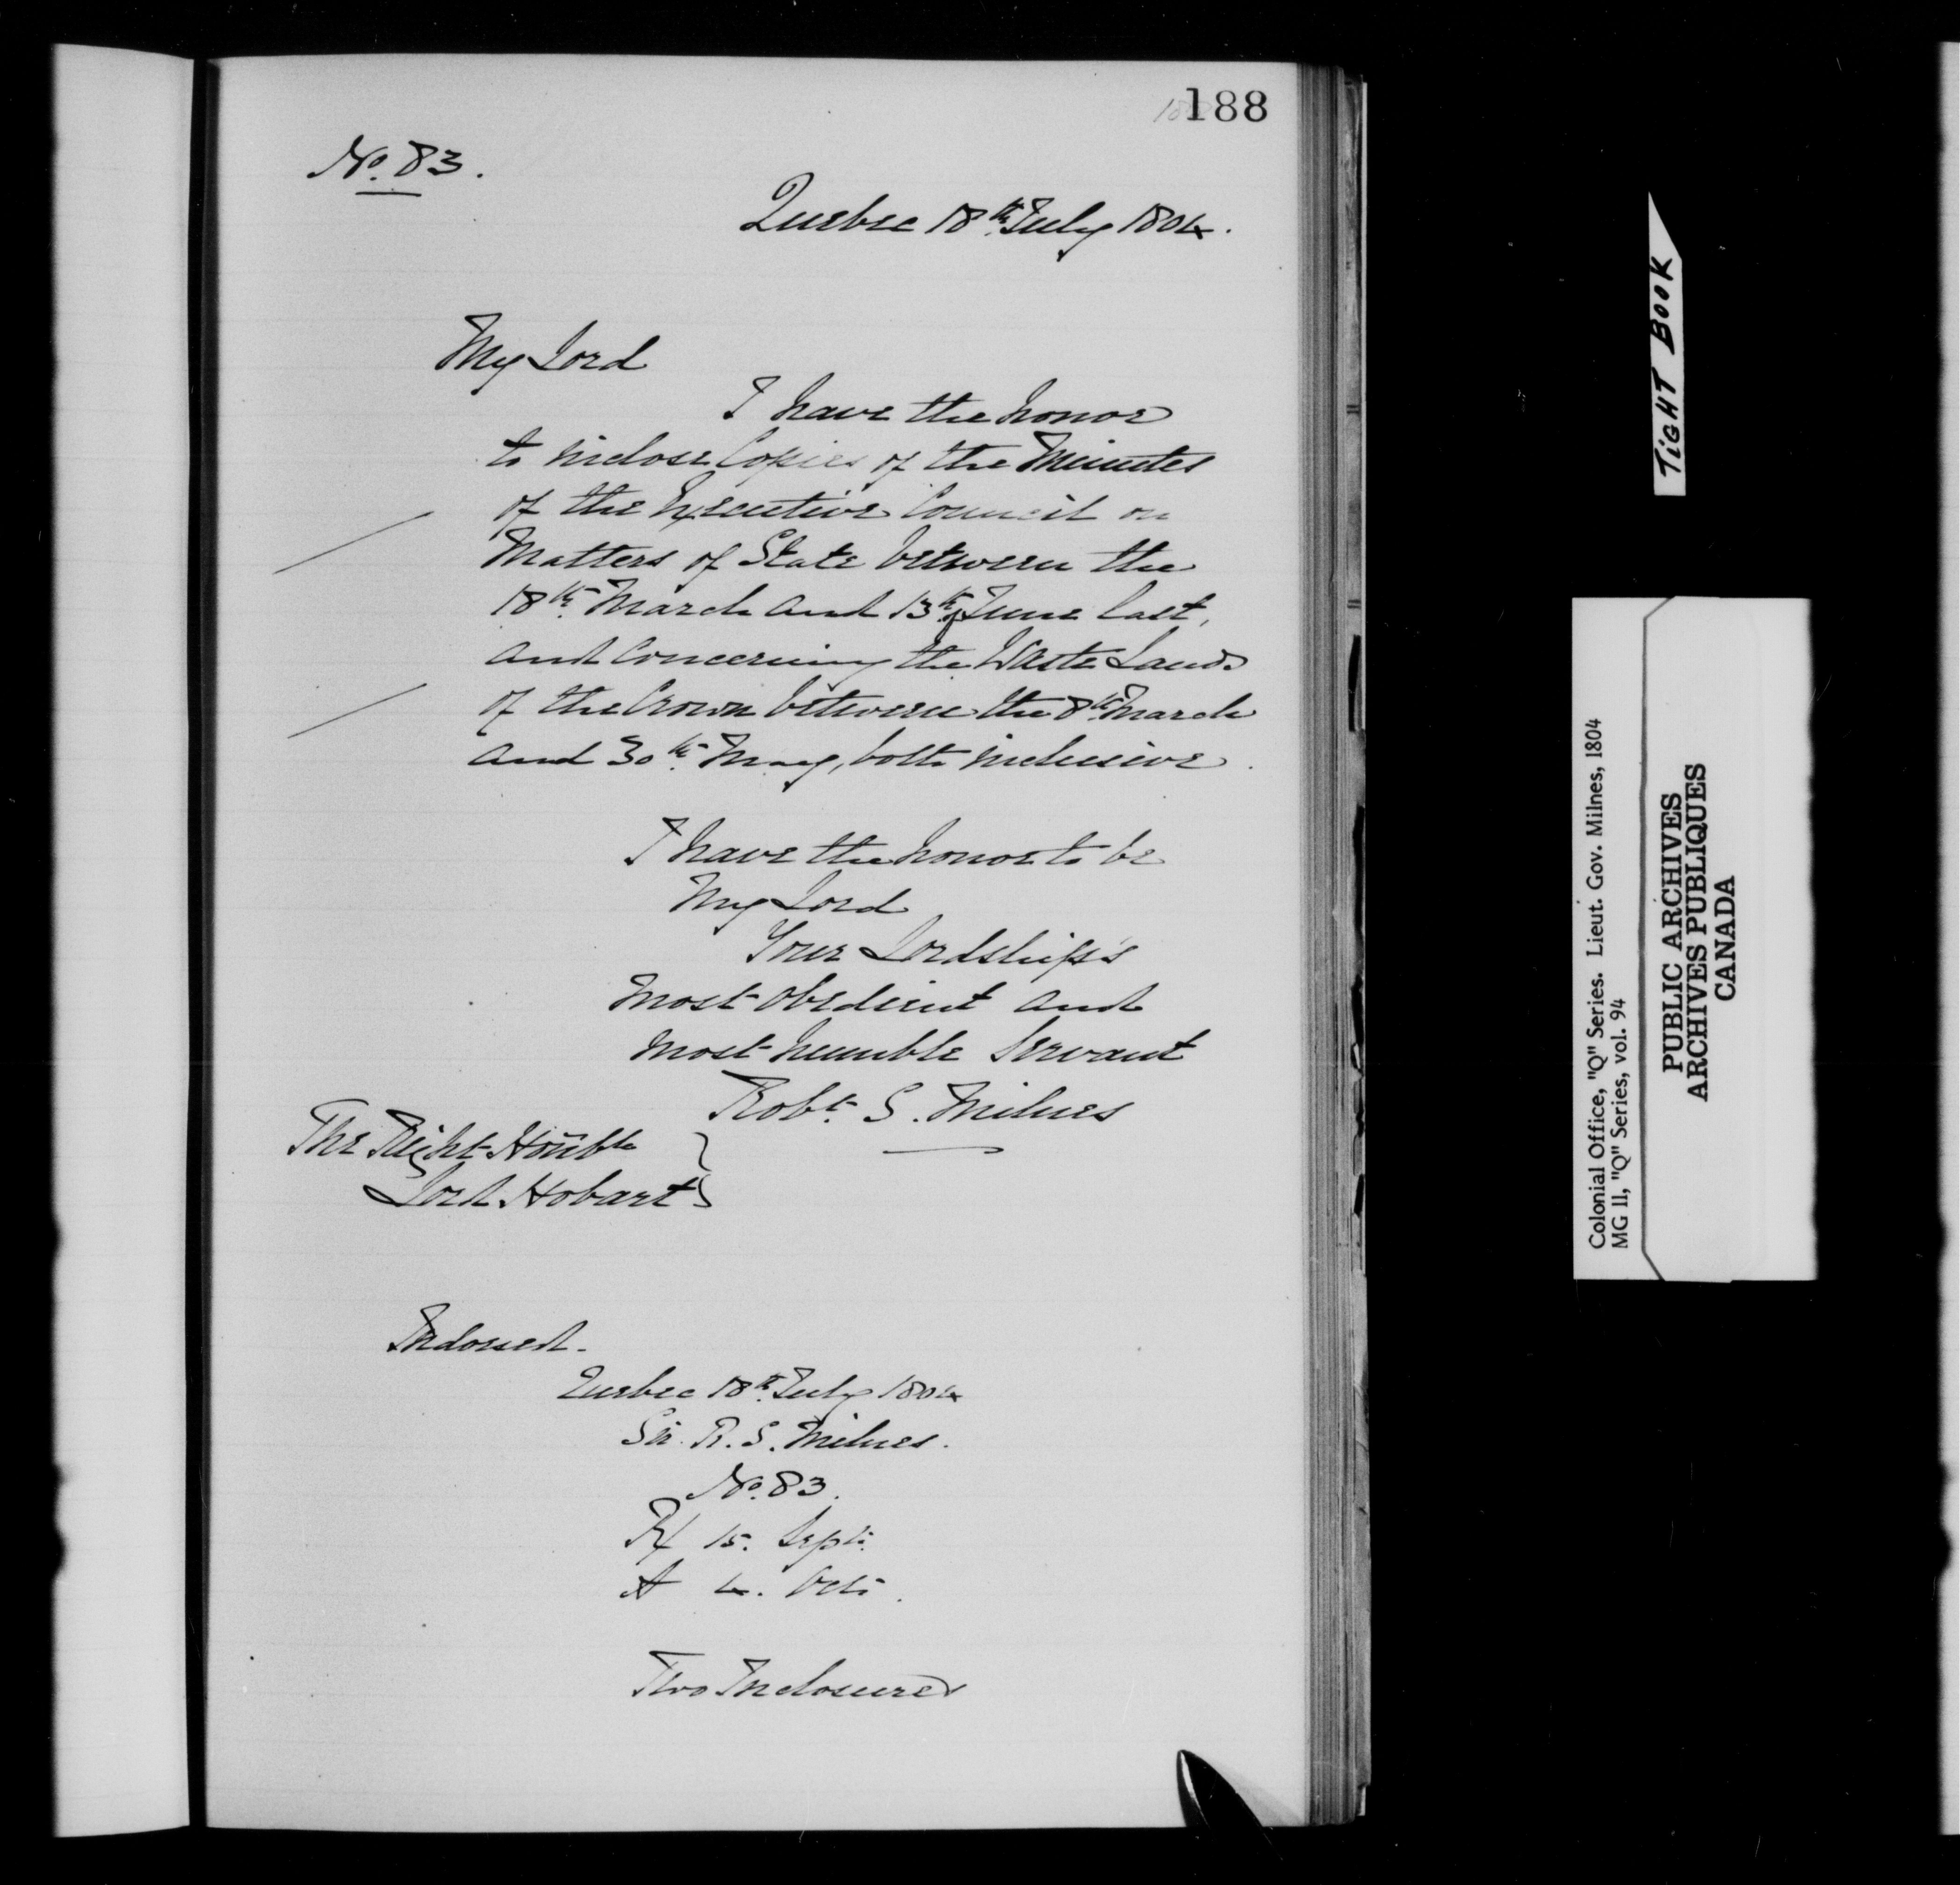 188
No. 83.
Quebec 18th July 1804.
My Lord
I have the honor
to inclose Copies of the Minutes
of the Executive Council on
Matters of State between the
18th March and 13th June last,
and concerning the Waste Lands
of the Crown between the 8th March
and 30th May, both inclusive.
I have the honor to be
My Lord
Your Lordship's
most obedient and
most humble Servant
Robt. S. Milnes
The Right Honble
Lord Hobart
Indorsed.
Quebec 18th July 1804
Sir R. S. Milnes.
No. 83.
R/ 15. Sept.
A 4. Octr.
Two Inclosures
TIGHT BOOK
Colonial Office, "Q" Series. Lieut. Gov. Milnes, 1804
MG 11, "Q" Series, vol. 94
PUBLIC ARCHIVES
ARCHIVES PUBLIQUES
CANADA